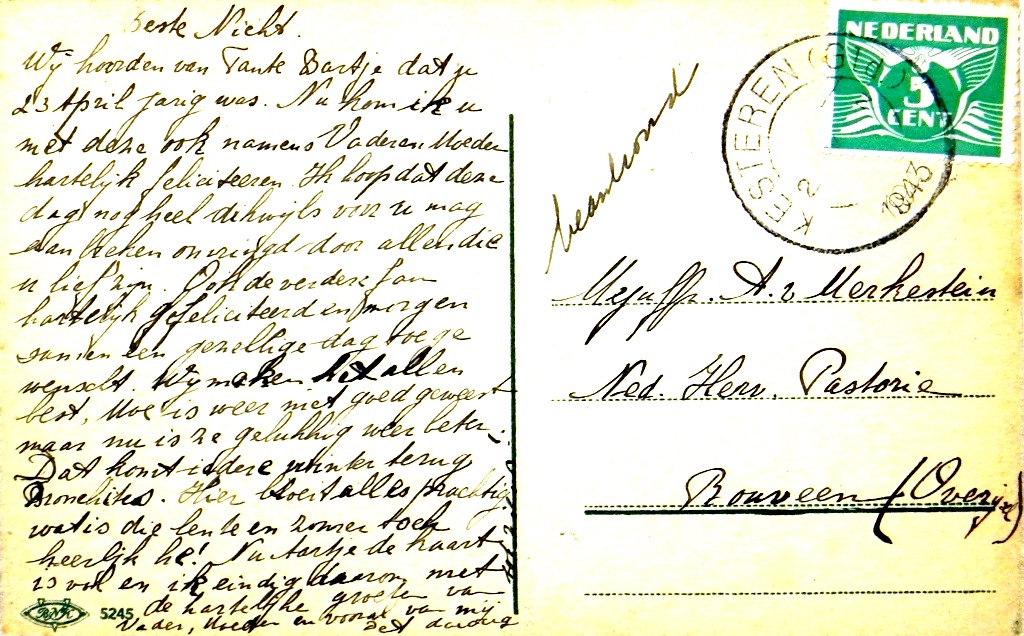 Beste Nicht.
Wij hoorden van Tante Bartje dat u
23 April jarig was. Nu kom ik u
met deze ook namens Vader en Moeder
hartelijk feliciteeren. Ik hoop dat deze
dag nog heel dikwijls voor u mag
aanbreken omringd door allen die
u lief zijn. Ook de verdere fam
hartelijk gefeliciteerd en morgen
samen een gezellige dag toege
wenscht. Wij maken het allen
best, Moe is weer niet goed geweest
maar nu is ze gelukkig weer beter.
Dat komt iedere winter terug
Bronchites. Hier bloeit alles prachtig
wat is die lente en zomer toch
heerlijk hè! Nu de kaart
is vol en ik eindig daarom met
de hartelijke groeten van
Vader, Moeder en vooral van mij
BNK 5245
beantwoord
NEDERLAND
5
CENT
KESTEREN (Gld)
2
1943
Mejuffr. A. v Merkestein
Ned. Herv. Pastorie
Rouveen (Overijsel)